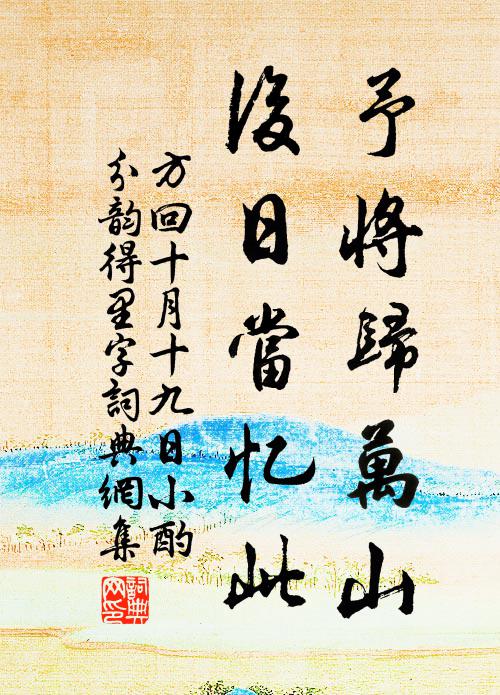 予將歸萬山
後日當忆此
方回十月十九日小酌
分韵得里字詞典網集
詞典網印